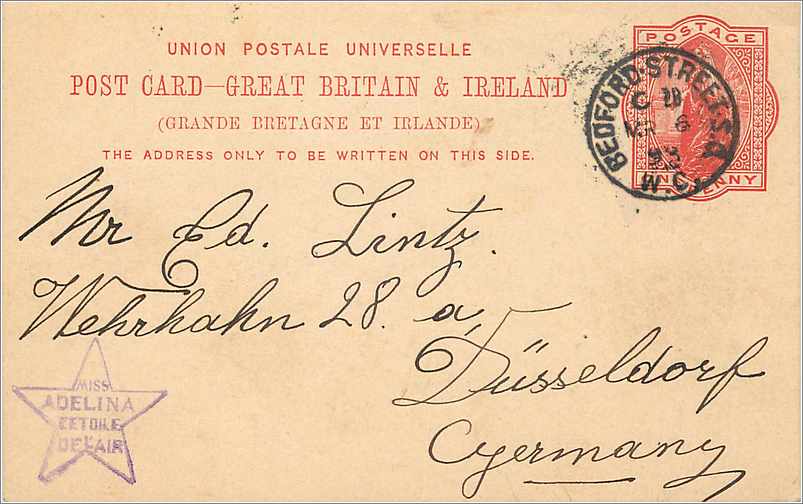 UNION POSTALE UNIVERSELLE
POST CARD—GREAT BRITAIN & IRELAND
(GRANDE BRETAGNE ET IRLANDE)
THE ADDRESS ONLY TO BE WRITTEN ON THIS SIDE.
POSTAGE
ONE PENNY
BEDFORD STREET S.O.
W.C.
Mr Ed. Lintz.
Wehrhahn 28. a,
Düsseldorf
Germany
MISS
ADELINA
L'ETOILE
DE L'AIR